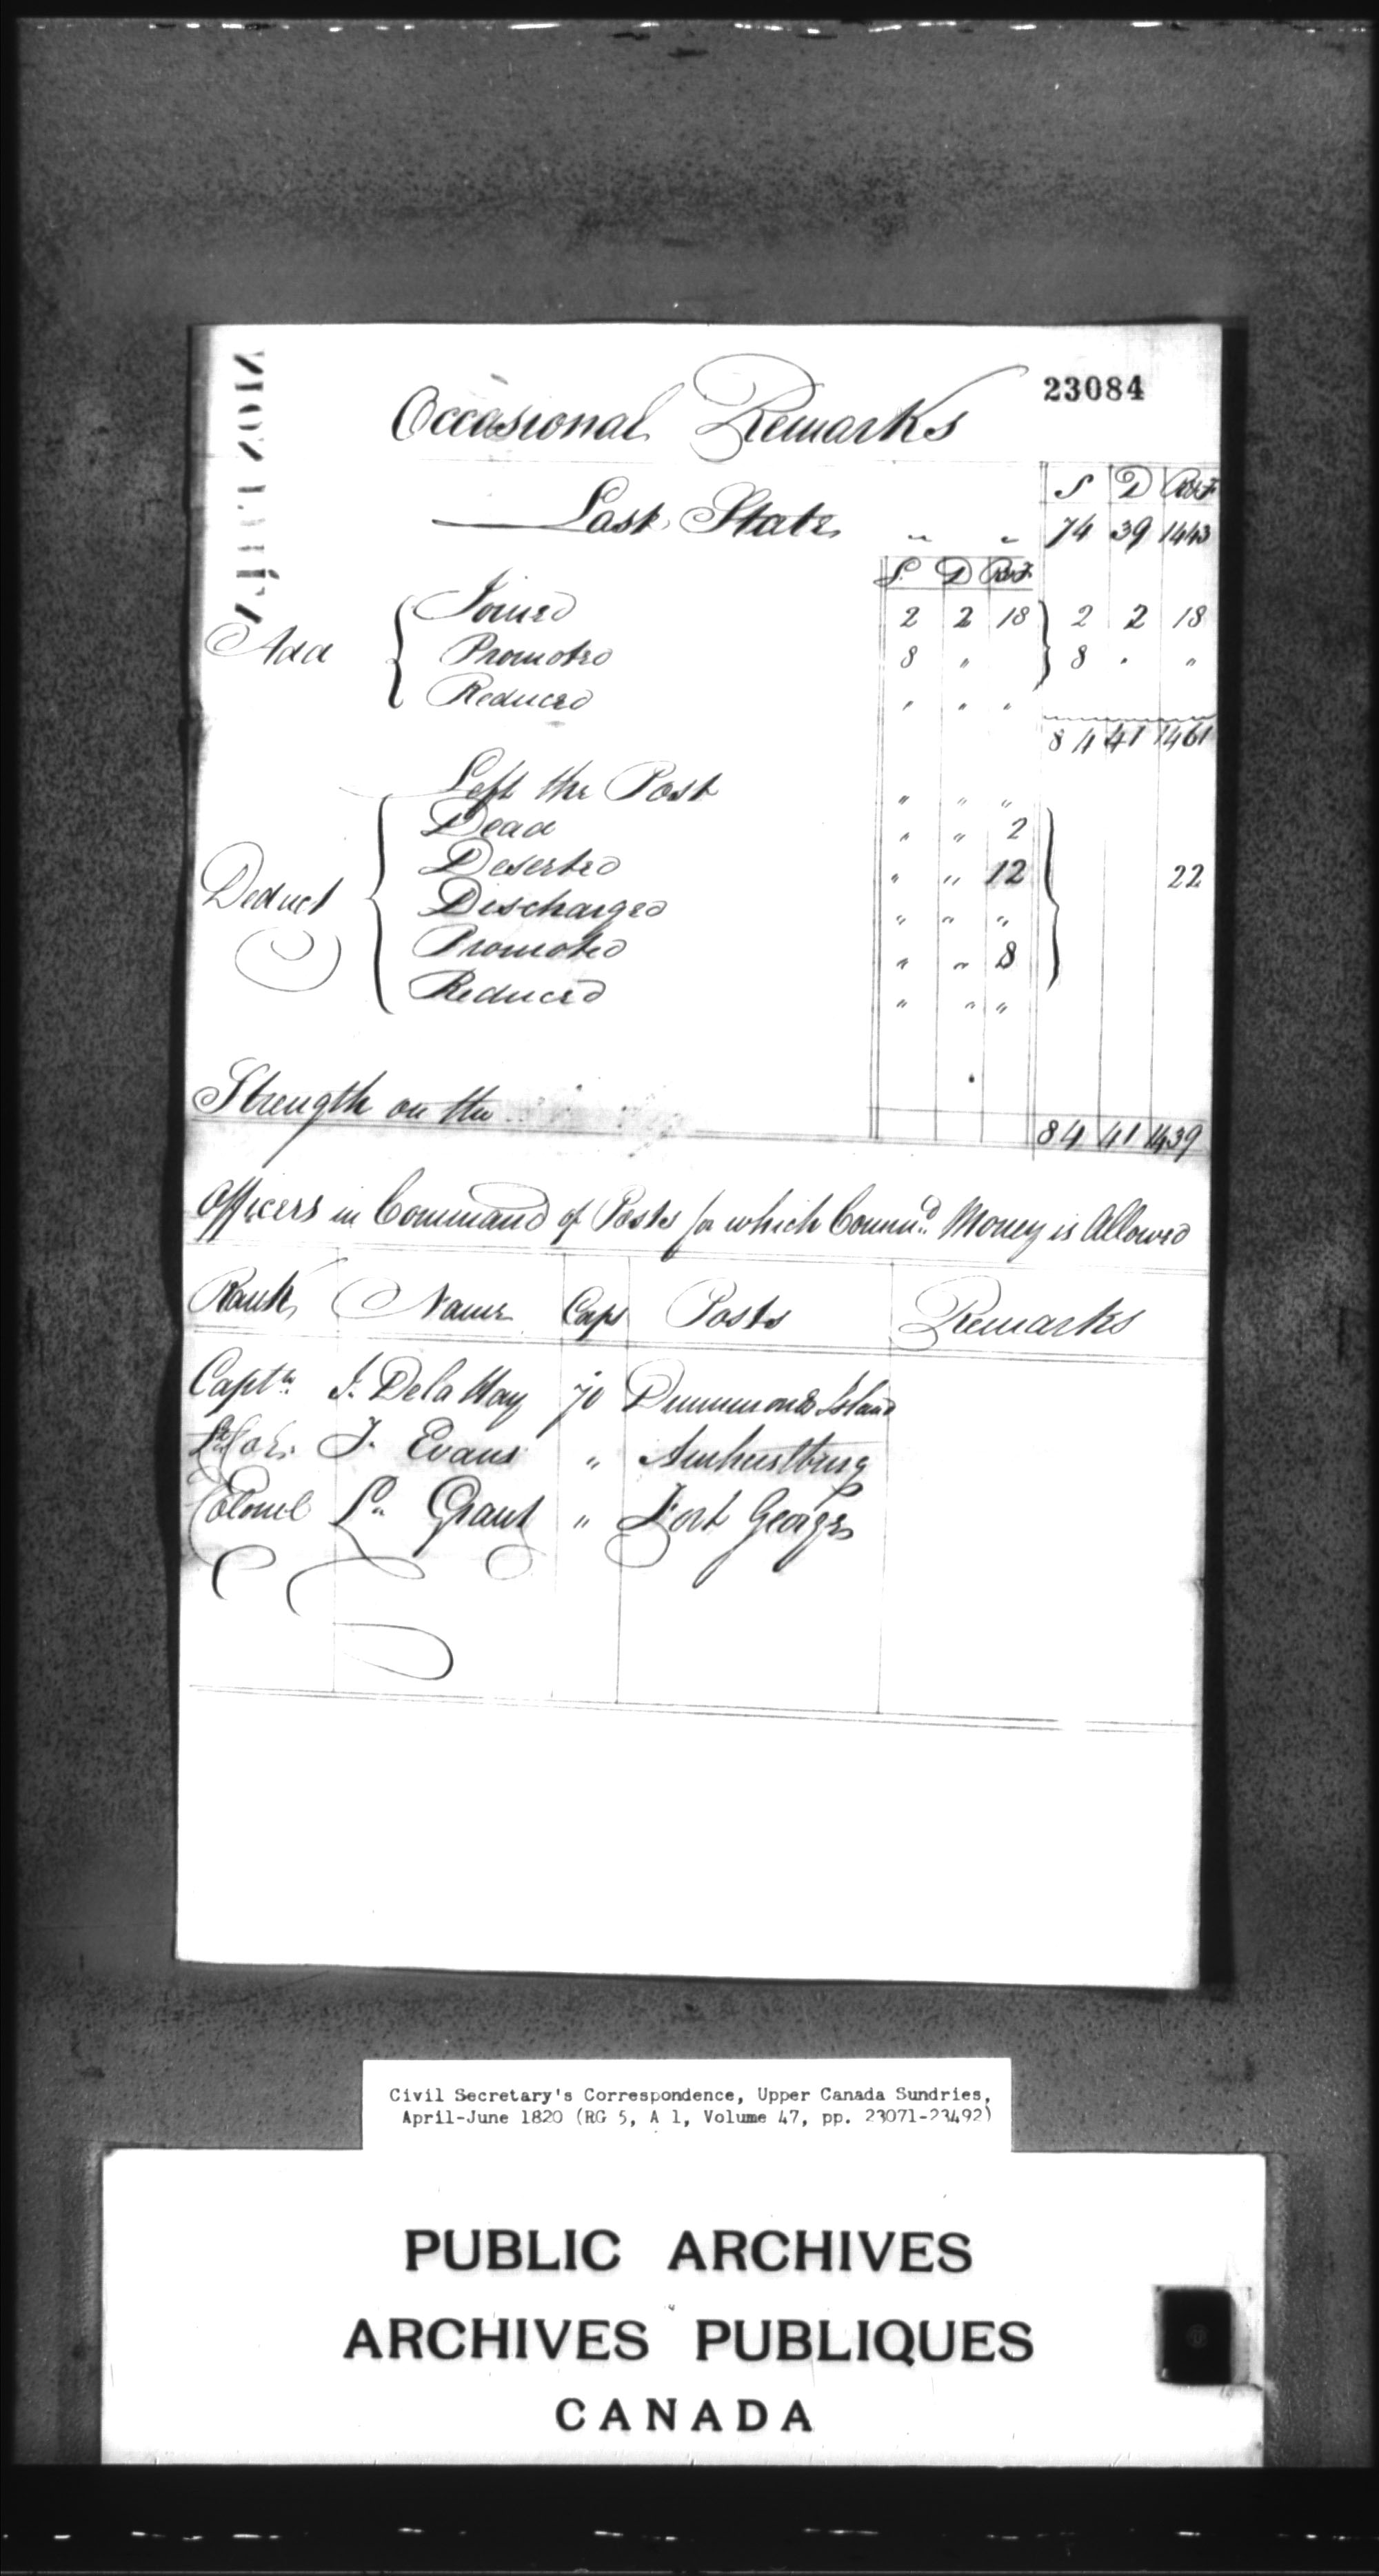 23084
Occasional Remarks
S D R&F
Last State " " 74 39 1443
S D R&F
Add
Joined 2 2 18 2 2 18
Promoted 8 " 8 " "
Reduced " " "
84 41 1461
Left the Post " " "
Dead " " 2
Deserted " " 12 22
Deduct
Discharged " " "
Promoted " " 8
Reduced " " "
Strength on the 84 41 1439
Officers in Command of Posts for which Commd. Money is Allowed
Rank Name Corps Posts Remarks
Captn. J. Dela Hay 70 Drummond Island
Lt. Col. T. Evans " Amherstburg
Colonel Ls. Grant " Fort George
Civil Secretary's Correspondence, Upper Canada Sundries,
April-June 1820 (RG 5, A 1, Volume 47, pp. 23071-23492)
PUBLIC ARCHIVES
ARCHIVES PUBLIQUES
CANADA